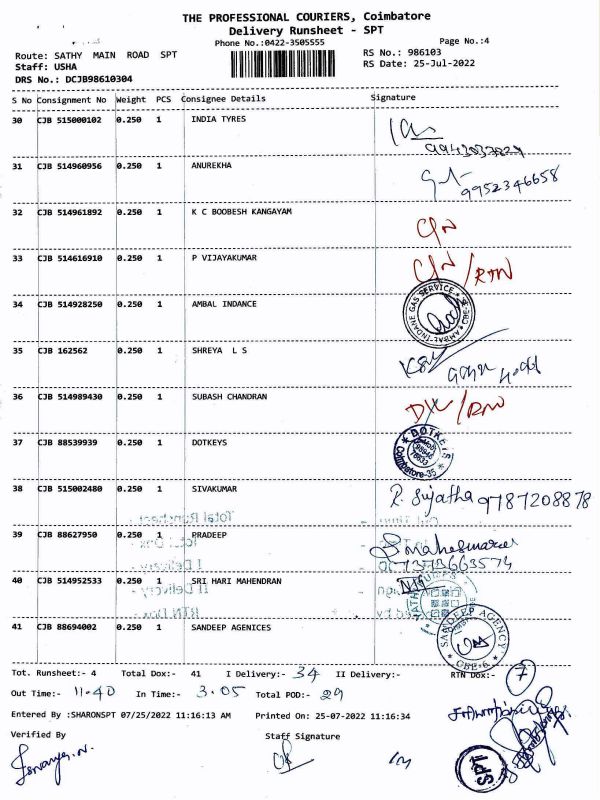 THE PROFESSIONAL COURIERS, Coimbatore
Delivery Runsheet - SPT
Phone No.:0422-3505555 Page No.:4
Route: SATHY MAIN ROAD SPT RS No.: 986103
Staff: USHA RS Date: 25-Jul-2022
DRS No.: DCJB98610304
S No Consignment No Weight PCS Consignee Details Signature
30 CJB 515000102 0.250 1 INDIA TYRES
31 CJB 514960956 0.250 1 ANUREKHA
9952346658
32 CJB 514961892 0.250 1 K C BOOBESH KANGAYAM
33 CJB 514616910 0.250 1 P VIJAYAKUMAR
/RTN
34 CJB 514928250 0.250 1 AMBAL INDANCE
AMBAL INDANE GAS SERVICE CBE
35 CJB 162562 0.250 1 SHREYA L S
36 CJB 514989430 0.250 1 SUBASH CHANDRAN
/RTN
37 CJB 88539939 0.250 1 DOTKEYS
DOTKEYS
Coimbatore-35
38 CJB 515002480 0.250 1 SIVAKUMAR
R. Sujatha 9787208878
39 CJB 88627950 0.250 1 PRADEEP
7373663574
40 CJB 514952533 0.250 1 SRI HARI MAHENDRAN
41 CJB 88694002 0.250 1 SANDEEP AGENICES
SANDEEP AGENCY
CBE-6
Tot. Runsheet:- 4 Total Dox:- 41 I Delivery:- 34 II Delivery:- RTN Dox:- 7
Out Time:- 11.40 In Time:- 3.05 Total POD:- 29
Entered By :SHARONSPT 07/25/2022 11:16:13 AM Printed On: 25-07-2022 11:16:34
Verified By Staff Signature
SPT